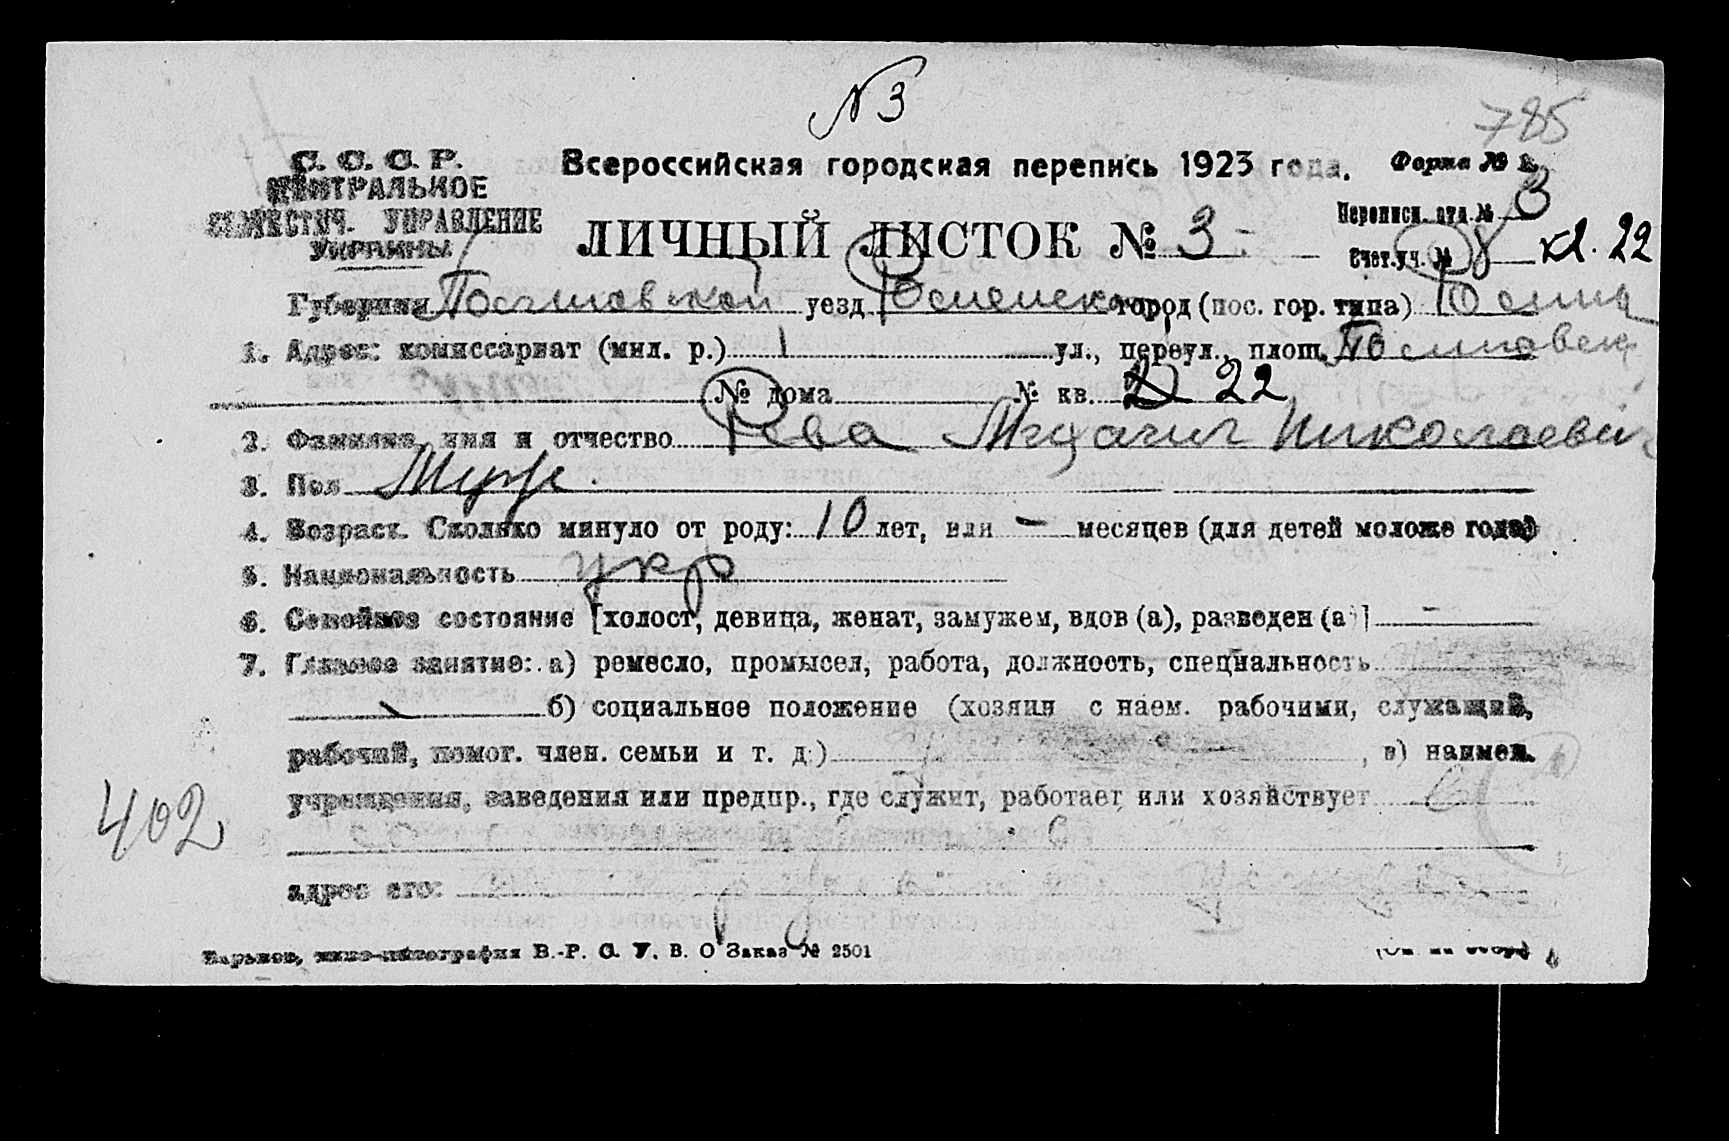 N 3
785
С. С. С. Р.
ЦЕНТРАЛЬНОЕ
СТАТИСТИЧ. УПРАВЛЕНИЕ
УКРАИНЫ
Всероссийская городская перепись 1923 года. Форма № 2.
ЛИЧНЫЙ ЛИСТОК № 3 -
Переписн. отд. № 3
Счет. уч. № 8 кл. 22
Губерния Полтавской уезд Роменск город (пос. гор. типа) Ромны
1. Адрес: комиссариат (мил. р.) 1 ул., переул., площ. Полтавск
№ дома № кв. 22
2. Фамилия, имя и отчество Рева Николаевич
3. Пол Муж.
4. Возраст. Сколько минуло от роду: 10 лет, или - месяцев (для детей моложе года)
5. Национальность укр
6. Семейное состояние [холост, девица, женат, замужем, вдов (а), разведен (а)] -
7. Главное занятие: а) ремесло, промысел, работа, должность, специальность
б) социальное положение (хозяин с наем. рабочими, служащий,
рабочий, помог. член. семьи и т. д.) , в) наимен.
учреждения, заведения или предпр., где служит, работает или хозяйствует
402
адрес его:
Харьков, типо-литография В.-Р. С. У. В. О Заказ № 2501